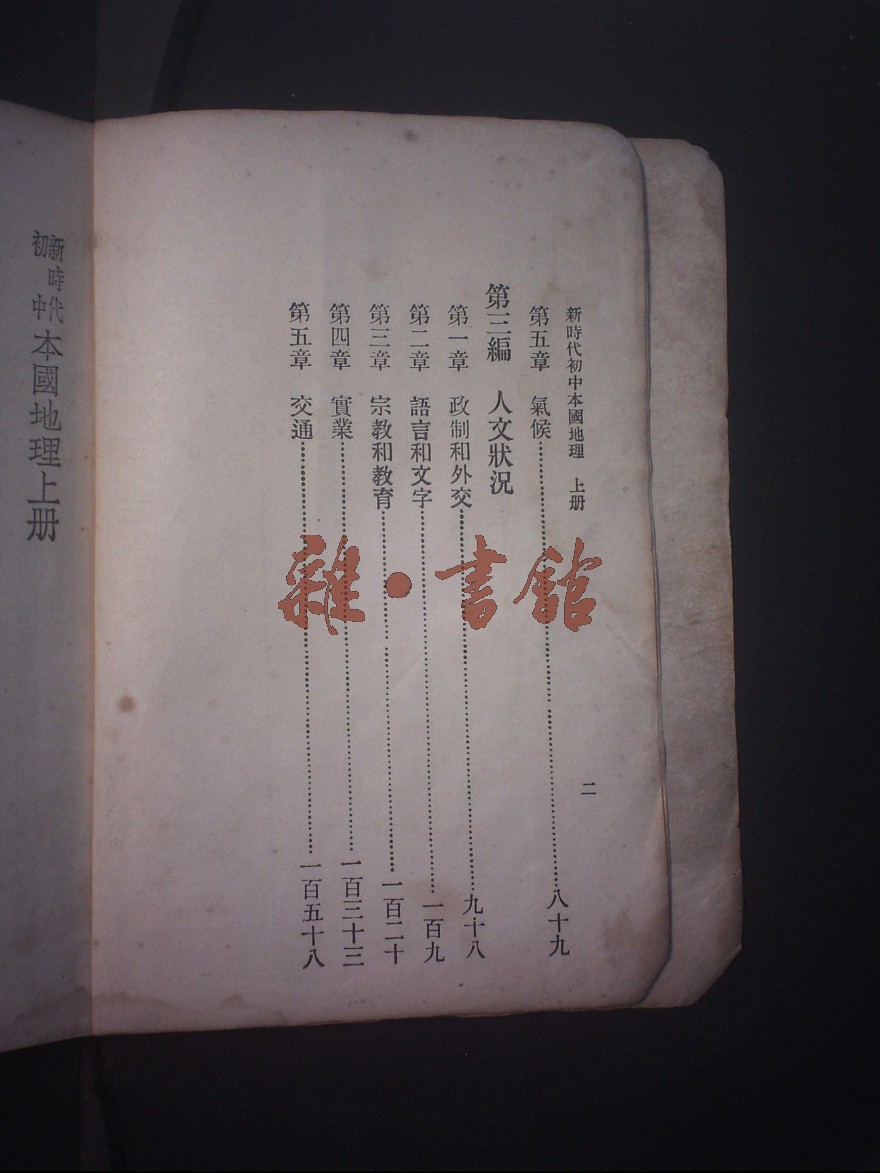 新時代初中本國地理　上册
二
第五章　氣候……八十九
第三編　人文狀況
第一章　政制和外交……九十八
第二章　語言和文字……一百九
第三章　宗教和教育……一百二十
第四章　實業……一百三十三
第五章　交通……一百五十八
新時代
初中
本國地理上册
雜·書館